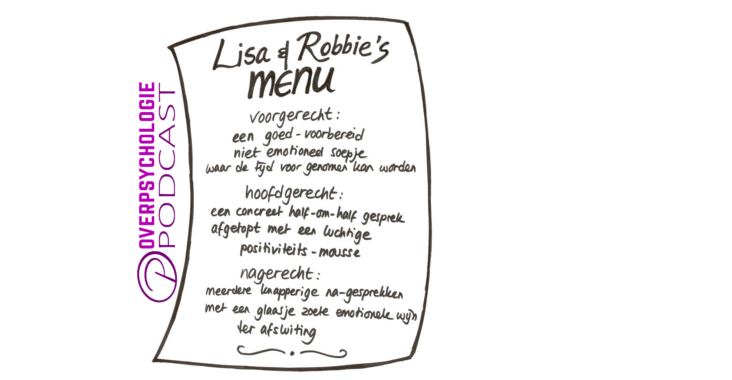 OVERPSYCHOLOGIE
PODCAST
Lisa & Robbie's
MENU
voorgerecht:
een goed-voorbereid
niet emotioneel soepje
waar de tijd voor genomen kan worden
hoofdgerecht:
een concreet half-om-half gesprek
afgetopt met een luchtige
positiviteits-mousse
nagerecht:
meerdere knapperige na-gesprekken
met een glaasje zoete emotionele wijn
ter afsluiting